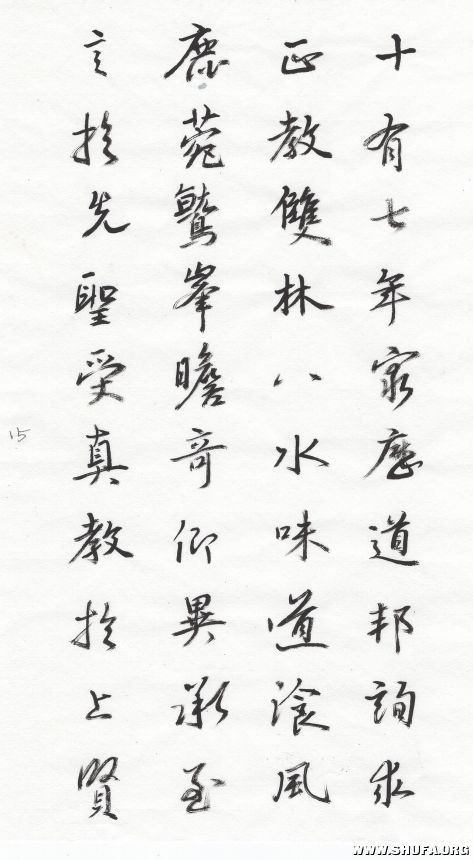 十有七年窮歷道邦詢求
正教雙林八水味道飡風
鹿菀鷲峯瞻奇仰異承至
言於先聖受真教於上賢
15
WWW.SHUFA.ORG